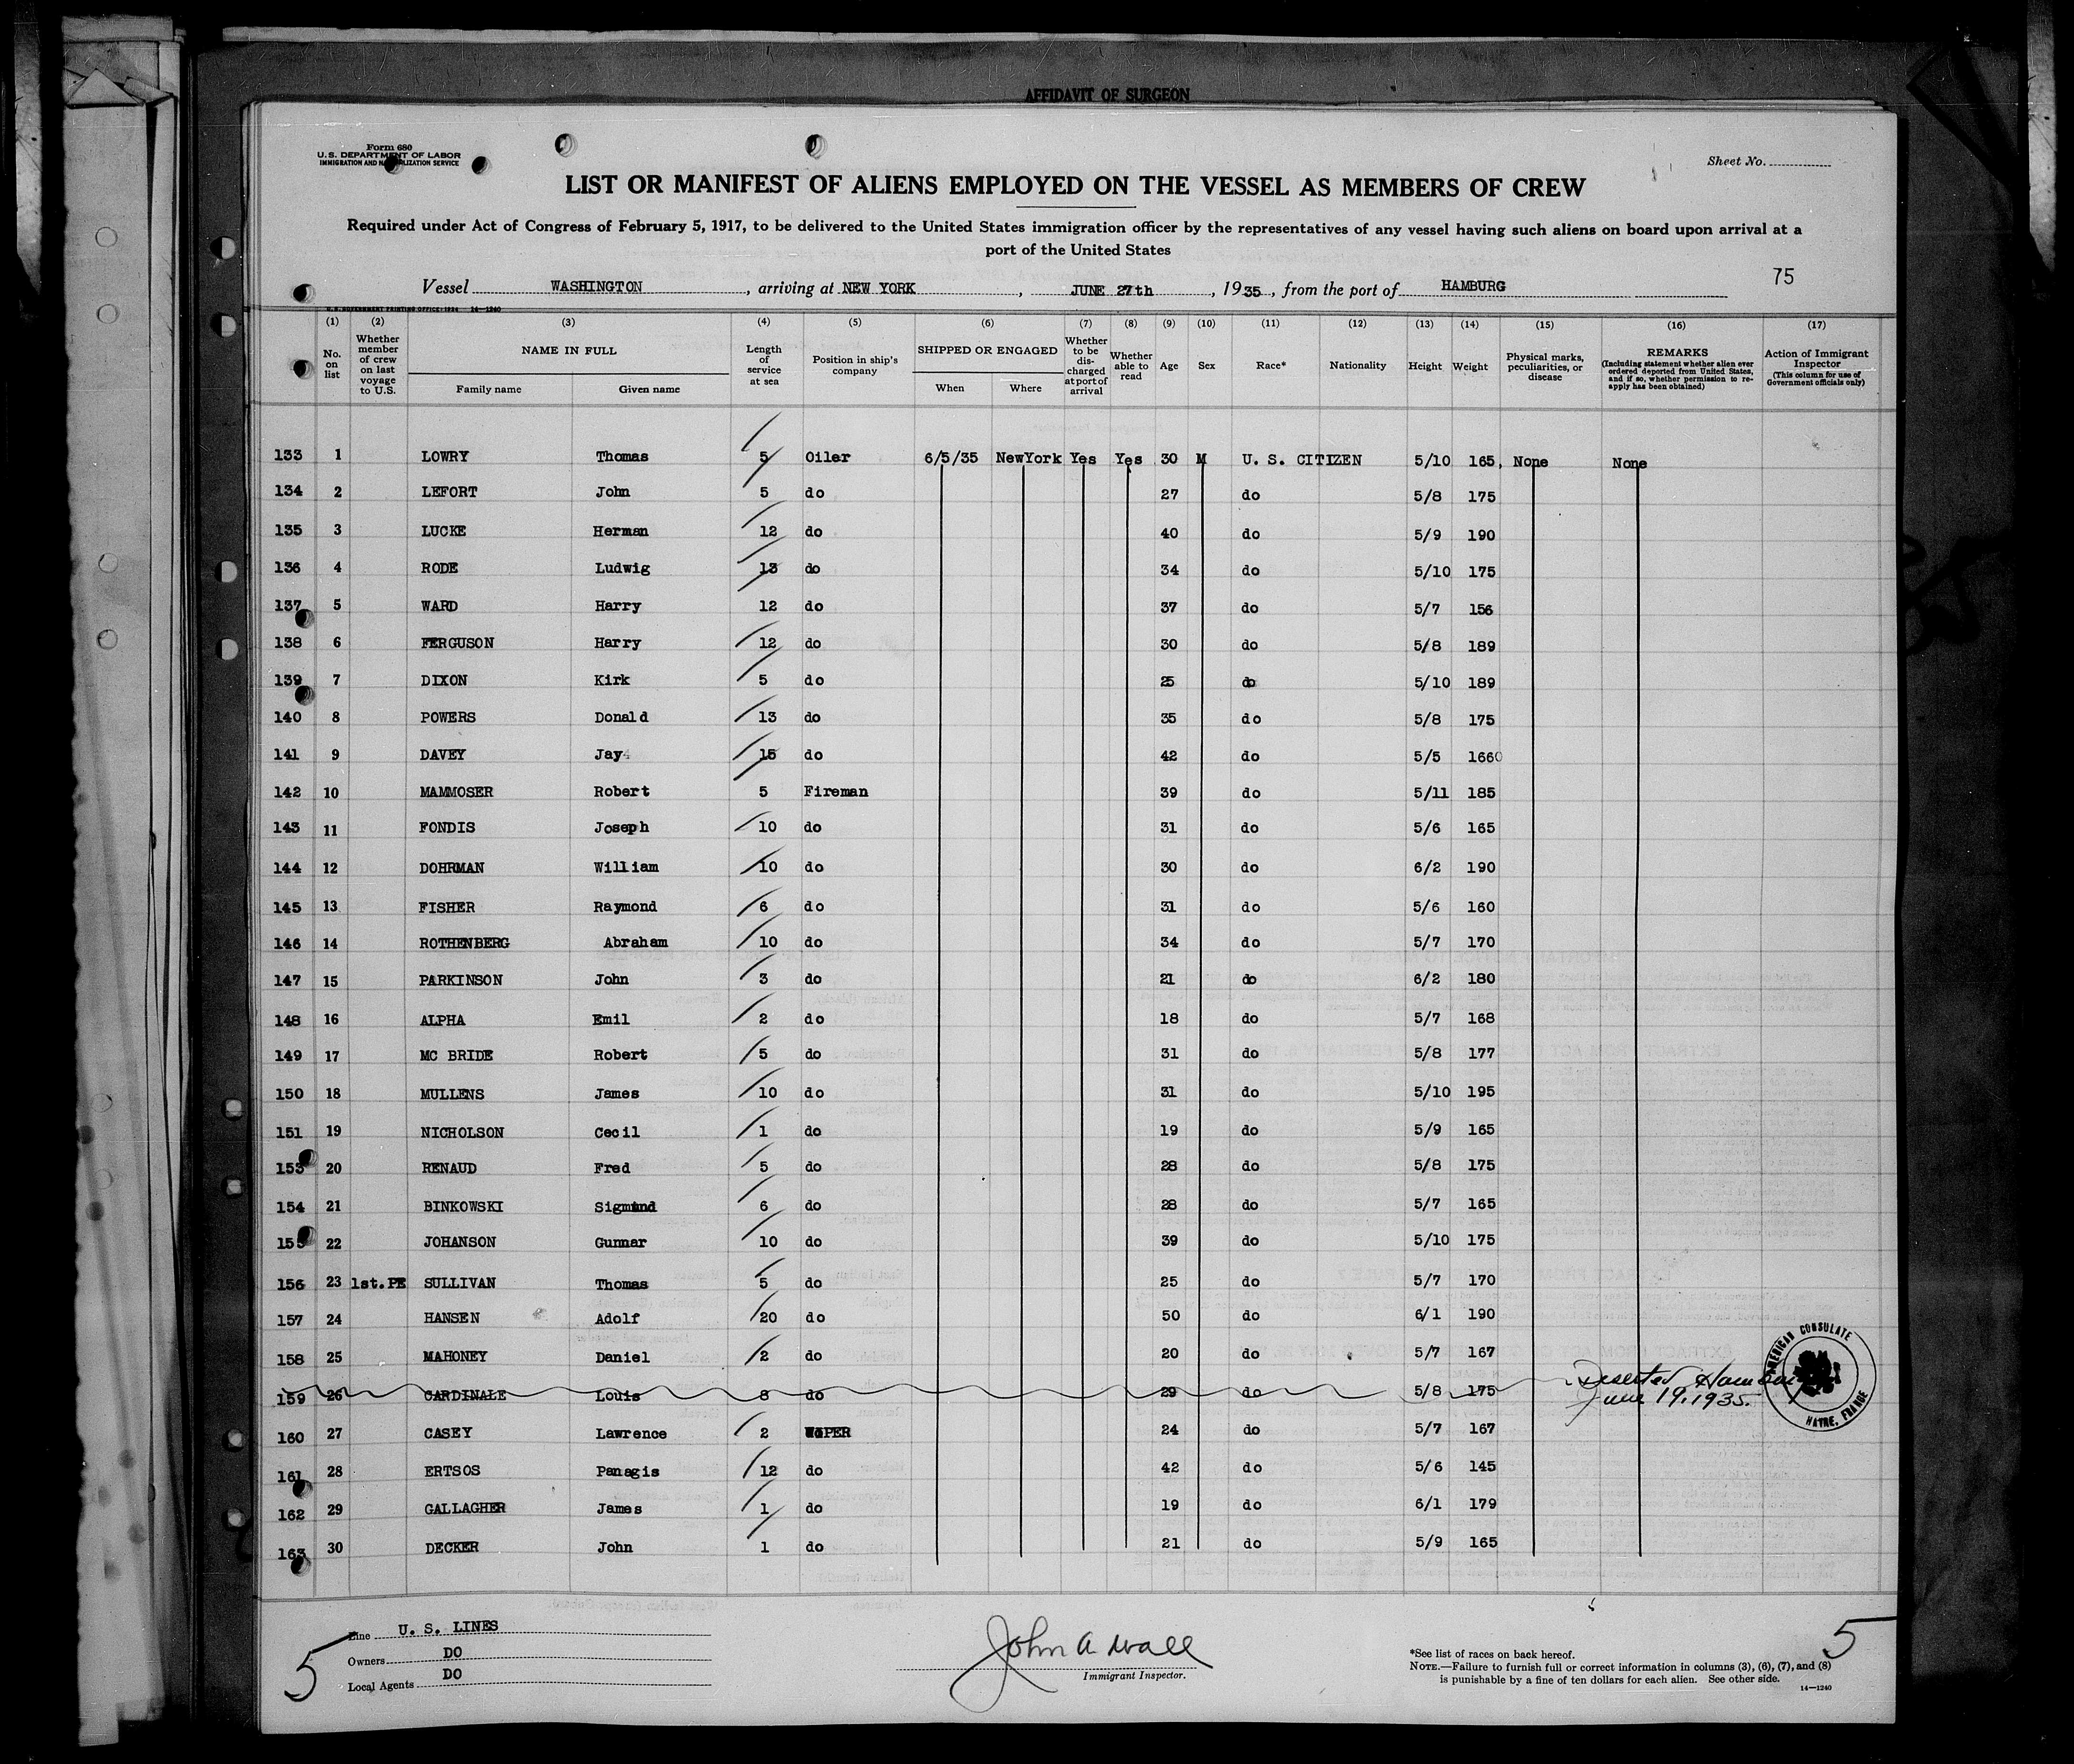 AFFIDAVIT OF SURGEON
Form 680
U. S. DEPARTMENT OF LABOR
IMMIGRATION AND NATURALIZATION SERVICE
Sheet No.
LIST OR MANIFEST OF ALIENS EMPLOYED ON THE VESSEL AS MEMBERS OF CREW
Required under Act of Congress of February 5, 1917, to be delivered to the United States immigration officer by the representatives of any vessel having such aliens on board upon arrival at a
port of the United States
75
Vessel WASHINGTON, arriving at NEW YORK, JUNE 27th, 1935, from the port of HAMBURG
U. S. GOVERNMENT PRINTING OFFICE: 1934 14—1240
(1) (2) (3) (4) (5) (6) (7) (8) (9) (10) (11) (12) (13) (14) (15) (16) (17)
No. on list
Whether member of crew on last voyage to U.S.
NAME IN FULL
Family name Given name
Length of service at sea
Position in ship's company
SHIPPED OR ENGAGED
When Where
Whether to be discharged at port of arrival
Whether able to read
Age
Sex
Race*
Nationality
Height
Weight
Physical marks, peculiarities, or disease
REMARKS
(Including statement whether alien ever ordered deported from United States, and if so, whether permission to re-apply has been obtained)
Action of Immigrant Inspector
(This column for use of Government officials only)
133 1 LOWRY Thomas 5 Oiler 6/5/35 NewYork Yes Yes 30 M U. S. CITIZEN 5/10 165, None None
134 2 LEFORT John 5 do 27 do 5/8 175
135 3 LUCKE Herman 12 do 40 do 5/9 190
136 4 RODE Ludwig 13 do 34 do 5/10 175
137 5 WARD Harry 12 do 37 do 5/7 156
138 6 FERGUSON Harry 12 do 30 do 5/8 189
139 7 DIXON Kirk 5 do 25 do 5/10 189
140 8 POWERS Donald 13 do 35 do 5/8 175
141 9 DAVEY Jay 15 do 42 do 5/5 1660
142 10 MAMMOSER Robert 5 Fireman 39 do 5/11 185
143 11 FONDIS Joseph 10 do 31 do 5/6 165
144 12 DOHRMAN William 10 do 30 do 6/2 190
145 13 FISHER Raymond 6 do 31 do 5/6 160
146 14 ROTHENBERG Abraham 10 do 34 do 5/7 170
147 15 PARKINSON John 3 do 21 do 6/2 180
148 16 ALPHA Emil 2 do 18 do 5/7 168
149 17 MC BRIDE Robert 5 do 31 do 5/8 177
150 18 MULLENS James 10 do 31 do 5/10 195
151 19 NICHOLSON Cecil 1 do 19 do 5/9 165
153 20 RENAUD Fred 5 do 28 do 5/8 175
154 21 BINKOWSKI Sigmund 6 do 28 do 5/7 165
155 22 JOHANSON Gunnar 10 do 39 do 5/10 175
156 23 1st.PE SULLIVAN Thomas 5 do 25 do 5/7 170
157 24 HANSEN Adolf 20 do 50 do 6/1 190
158 25 MAHONEY Daniel 2 do 20 do 5/7 167
159 26 CARDINALE Louis 8 do 29 do 5/8 175 Deserted Hamburg
June 19, 1935.
AMERICAN CONSULATE
HAVRE, FRANCE
160 27 CASEY Lawrence 2 WIPER 24 do 5/7 167
161 28 ERTSOS Panagis 12 do 42 do 5/6 145
162 29 GALLAGHER James 1 do 19 do 6/1 179
163 30 DECKER John 1 do 21 do 5/9 165
Line U. S. LINES
Owners DO
Local Agents DO
5
John A Wall
Immigrant Inspector.
5
*See list of races on back hereof.
NOTE.—Failure to furnish full or correct information in columns (3), (6), (7), and (8)
is punishable by a fine of ten dollars for each alien. See other side.
14—1240